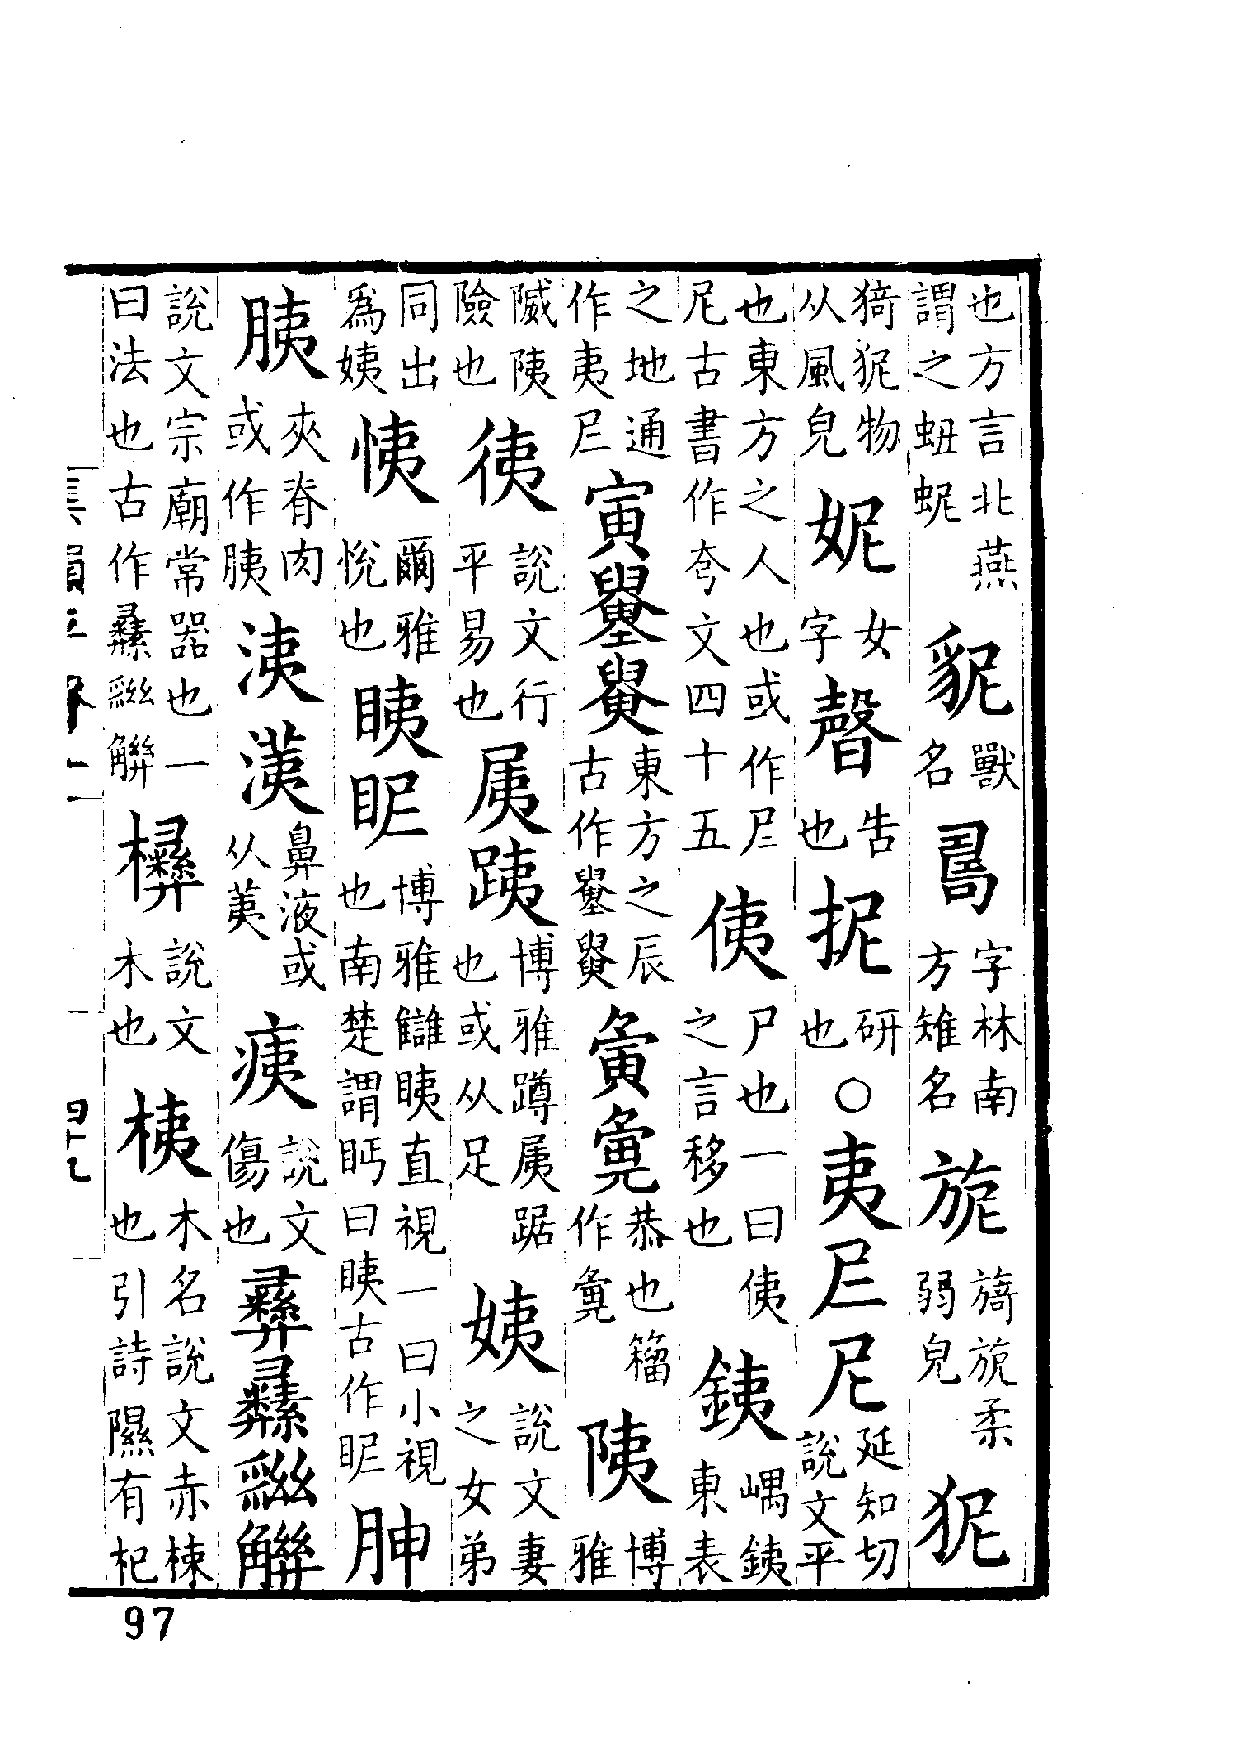 也方言北燕謂之䖡蚭 䝚 獸名 字林南方雉名 旎 旖旎柔弱皃 狔
猗狔物从風皃 妮 女字 告也 抳 研也 ○ 夷𡰥尼 延知切說文平
也東方之人也或作𡰥尼古書作夸文四十五 侇 尸也一曰侇之言移也 銕 嵎銕東表
之地通作夷𡰥 寅 東方之辰古作 夤 恭也籀作 博雅
隇險也 說文行平易也 跠 博雅蹲踞也或从足 姨 說文妻之女弟
同出爲姨 恞 爾雅悅也 眱眤 博雅眱直視一曰小視也南楚謂眄曰眱古作眤 胂
胰 夾脊肉或作胰 洟 鼻液或从荑 痍 說文傷也 彝
說文宗廟常器也一曰法也古作 說文木也 桋 木名說文赤楝也引詩隰有杞
集韻平聲一
四十九
97